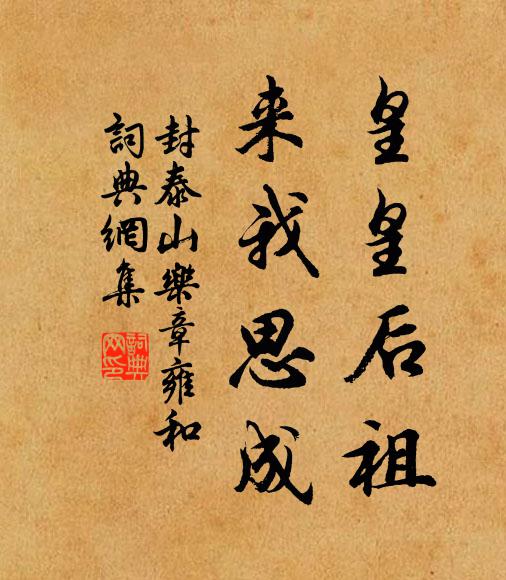 皇皇后祖
来我思成
封泰山樂章雍和
詞典網集
詞典
网印